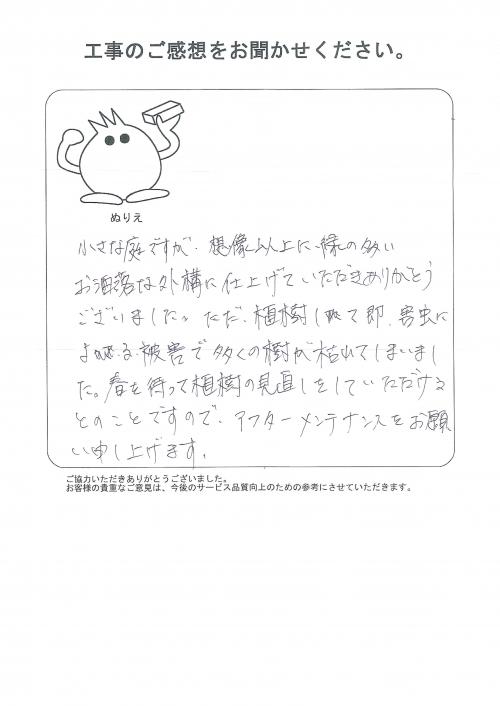 工事のご感想をお聞かせください。
ぬりえ
小さな庭ですが、想像以上に緑の多い
お洒落な外構に仕上げていただきありがとう
ございました。ただ、植樹して即、害虫に
よる被害で多くの樹が枯れてしまいまし
た。春を待って植樹の見直しをしていただける
とのことですので、アフターメンテナンスをお願
い申し上げます。
ご協力いただきありがとうございました。
お客様の貴重なご意見は、今後のサービス品質向上のための参考にさせていただきます。